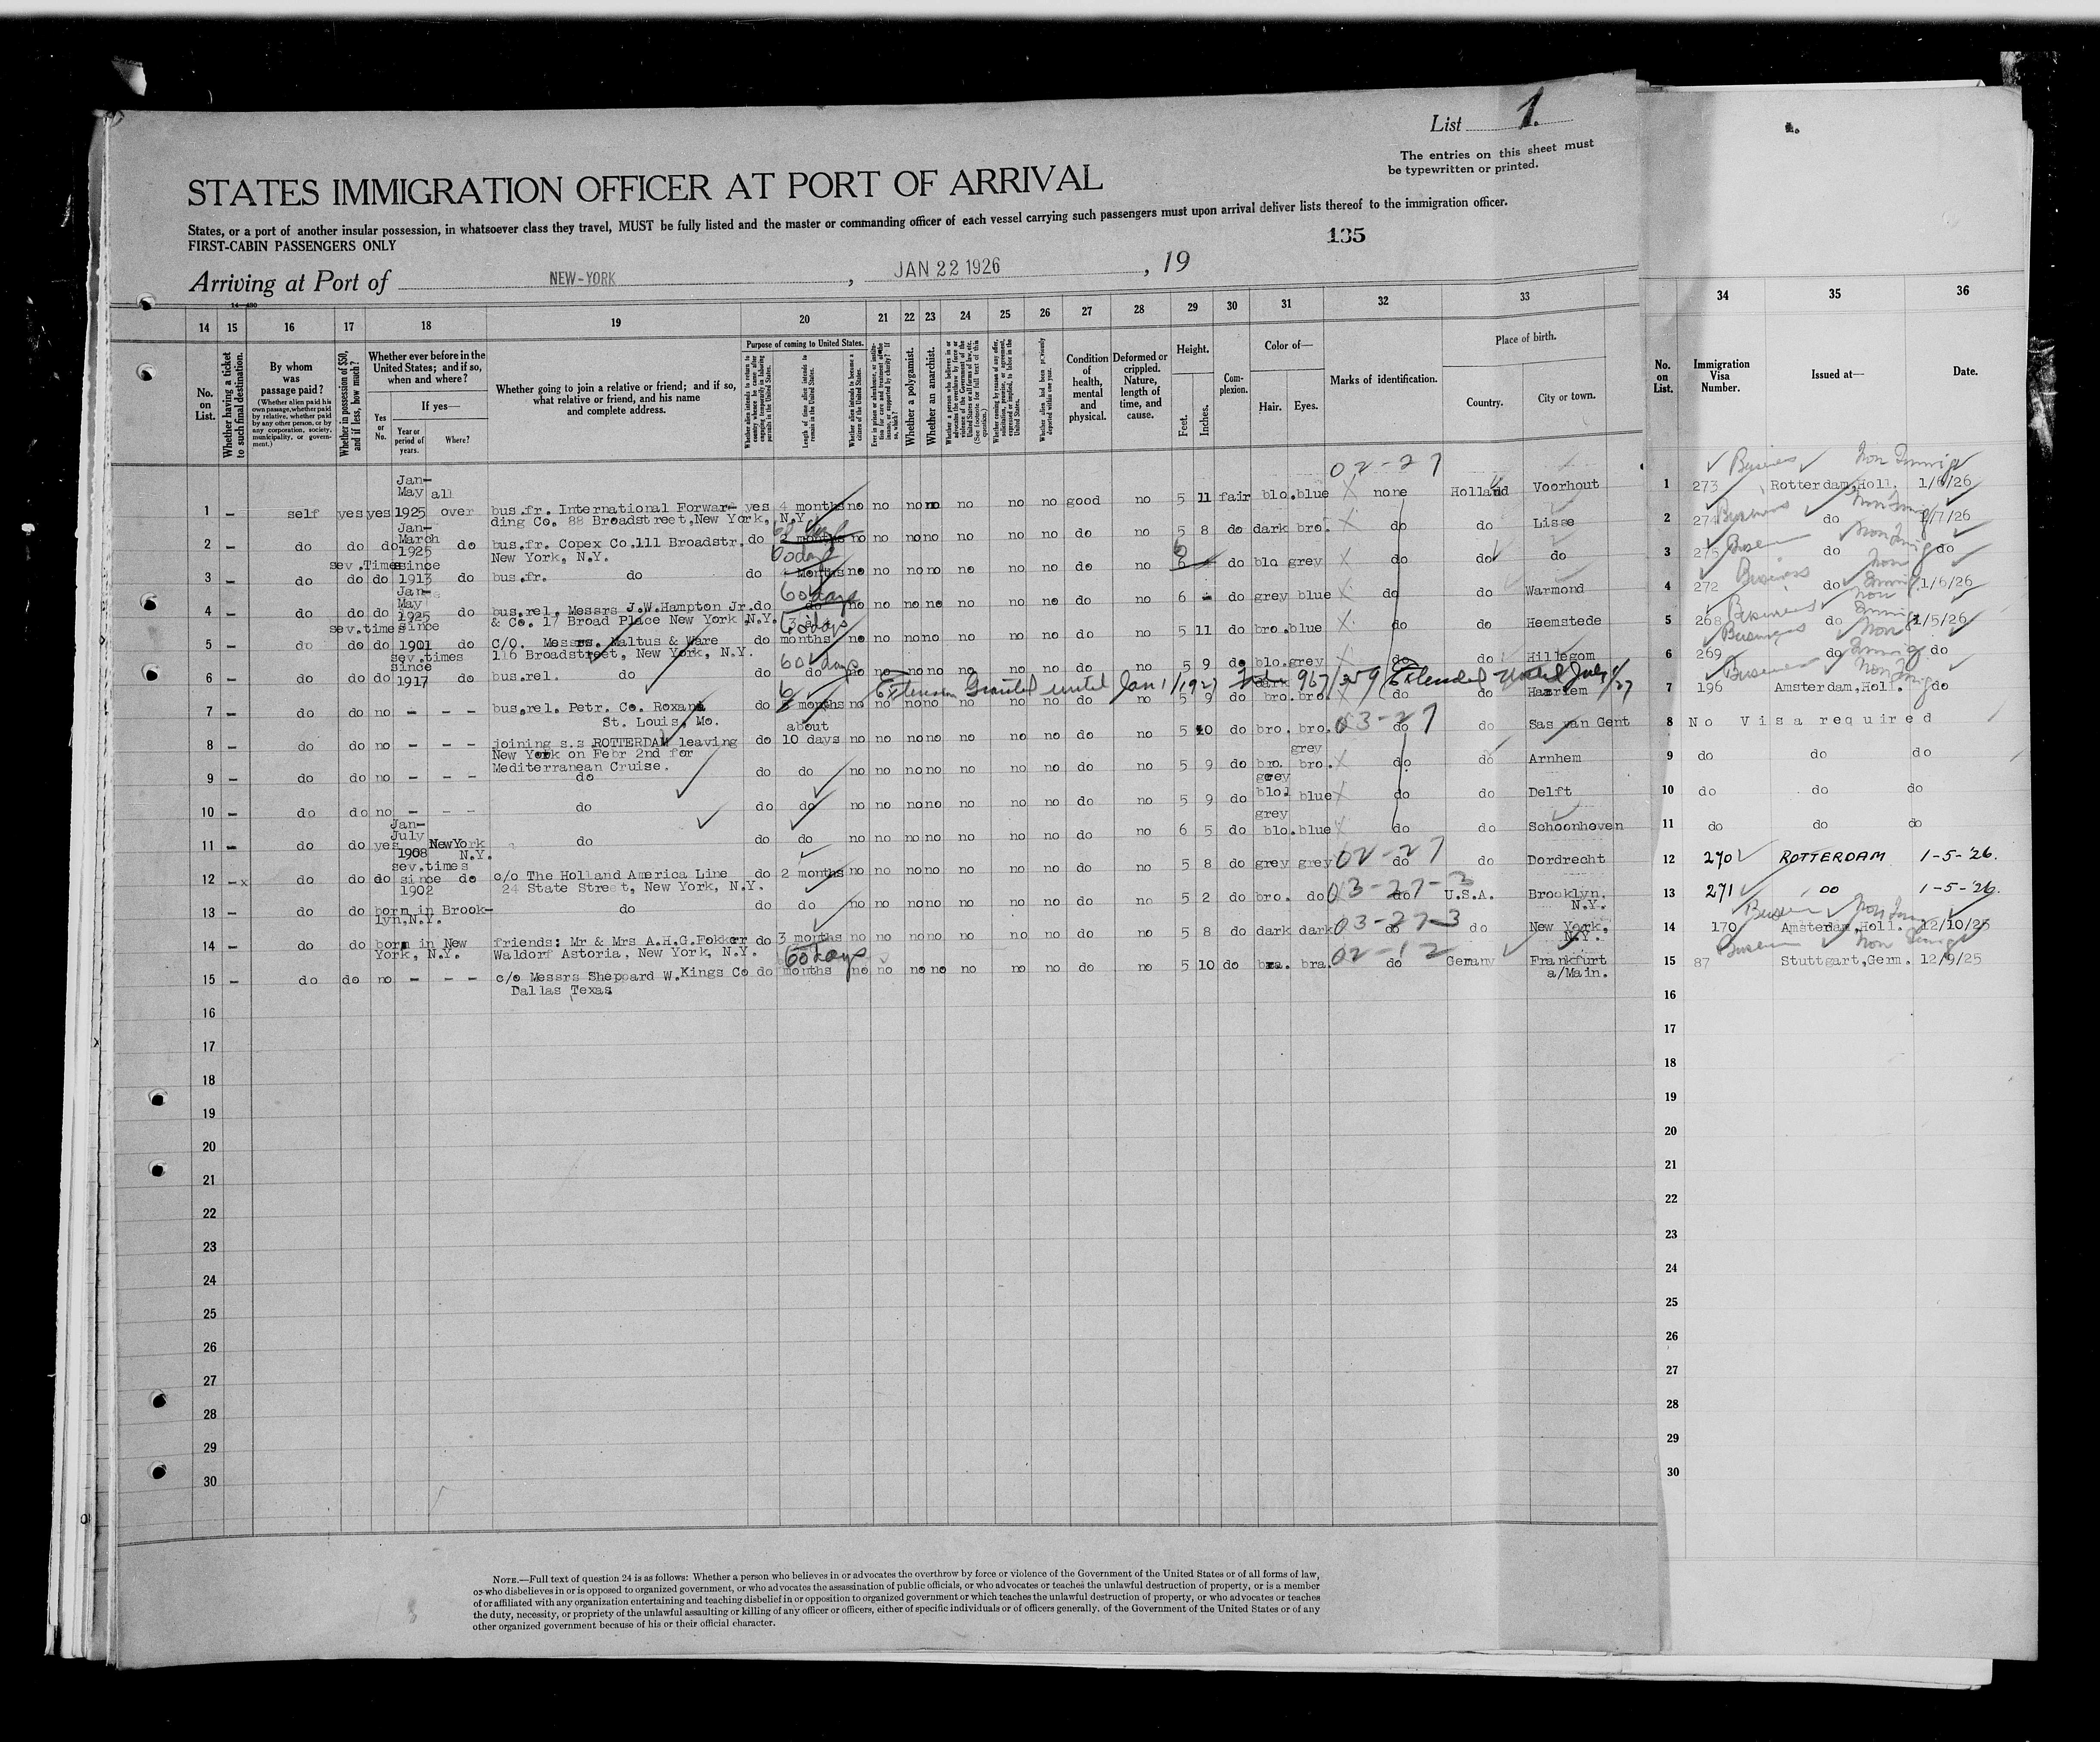 List 1.
The entries on this sheet must
be typewritten or printed.
STATES IMMIGRATION OFFICER AT PORT OF ARRIVAL
States, or a port of another insular possession, in whatsoever class they travel, MUST be fully listed and the master or commanding officer of each vessel carrying such passengers must upon arrival deliver lists thereof to the immigration officer.
FIRST-CABIN PASSENGERS ONLY
135
Arriving at Port of NEW-YORK, JAN 22 1926, 19
14 15 16 17 18 19 20 21 22 23 24 25 26 27 28 29 30 31 32 33 34 35 36
No. on List.
Whether having a ticket to such final destination.
By whom was passage paid?
(Whether alien paid his own passage, whether paid by relative, whether paid by any other person, or by any corporation, society, municipality, or government.)
Whether in possession of $50, and if less, how much?
Whether ever before in the United States; and if so, when and where?
Yes or No.
If yes—
Year or period of years.
Where?
Whether going to join a relative or friend; and if so, what relative or friend, and his name and complete address.
Purpose of coming to United States.
Length of time alien intends to remain in the United States.
Whether alien intends to become a citizen of the United States.
Whether a polygamist.
Whether an anarchist.
Condition of health, mental and physical.
Deformed or crippled. Nature, length of time, and cause.
Height.
Feet.
Inches.
Complexion.
Color of—
Hair.
Eyes.
Marks of identification.
Place of birth.
Country.
City or town.
No. on List.
Immigration Visa Number.
Issued at—
Date.
02-27
1 – self yes yes Jan-May 1925 all over bus.fr. International Forwarding Co. 88 Broadstreet, New York, N.Y. yes 4 months no no no no no no no good no 5 11 fair blo. blue none Holland Voorhout 1 273 Rotterdam, Holl. 1/6/26
2 – do do do Jan-March 1925 do bus.fr. Copex Co. 111 Broadstr. New York, N.Y. do 2 months no no no no no no no do no 5 8 do dark bro. do do Lisse 2 274 do 1/7/26
3 – do do do sev. Times since 1913 do bus.fr. do do 60 days 4 months no no no no no no no do no 6 do blo grey do do 3 275 do do
4 – do do do Jan-May 1925 do bus.rel. Messrs J.W.Hampton Jr. & Co. 17 Broad Place New York, N.Y. do 60 days do no no no no no no no do no 6 – do grey blue do do Warmond 4 272 do 1/6/26
5 – do do do sev. times since 1901 do c/o. Messrs. Maltus & Ware 116 Broadstreet, New York, N.Y. do 60 days 3 months no no no no no no no do no 5 11 do bro. blue do do Heemstede 5 268 do 1/5/26
6 – do do do sev. times since 1917 do bus.rel. do do 60 days do no no no no no no no do no 5 9 do blo. grey do do Hillegom 6 269 do do
Extension Granted until Jan 1/1927 967/ Extended until July 1/27
7 – do do no – – – bus.rel. Petr. Co. Roxana St. Louis, Mo. do 6 months no no no no no no no do no 5 9 do bro. bro. do do Haarlem 7 196 Amsterdam, Holl. do
8 – do do no – – – joining s.s ROTTERDAM leaving New York on Febr 2nd for Mediterranean Cruise. do about 10 days no no no no no no no do no 5 10 do bro. bro. 03-27 do do Sas van Gent 8 No Visa required
9 – do do no – – – do do do no no no no no no no do no 5 9 do bro. grey grey bro. do do Arnhem 9 do do do
10 – do do no – – – do do do no no no no no no no do no 5 9 do blo. blue do do Delft 10 do do do
11 – do do yes Jan-July 1908 New York N.Y. do do do no no no no no no no do no 6 5 do grey blo. blue do do Schoonhoven 11 do do do
12 –x do do do sev.times since 1902 do c/o The Holland America Line 24 State Street, New York, N.Y. do 2 months no no no no no no no do no 5 8 do grey grey 02-27 do do Dordrecht 12 270 ROTTERDAM 1-5-'26.
13 – do do born in Brooklyn, N.Y. do do do no no no no no no no do no 5 2 do bro. do 03-27-3 do U.S.A. Brooklyn, N.Y. 13 271 DO 1-5-'26.
14 – do do born in New York, N.Y. friends: Mr & Mrs A.H.G.Fokker Waldorf Astoria, New York, N.Y. do 3 months no no no no no no no do no 5 8 do dark dark 03-27-3 do do New York, N.Y. 14 170 Amsterdam, Holl. 12/10/25
15 – do do no – – – c/o Messrs Sheppard W. Kings Co Dallas Texas do 60 days months no no no no no no no do no 5 10 do bra. bra. 02-12 do Germany Frankfurt a/Main. 15 87 Stuttgart, Germ. 12/9/25
16 16
17 17
18 18
19 19
20 20
21 21
22 22
23 23
24 24
25 25
26 26
27 27
28 28
29 29
30 30
NOTE.—Full text of question 24 is as follows: Whether a person who believes in or advocates the overthrow by force or violence of the Government of the United States or of all forms of law,
or who disbelieves in or is opposed to organized government, or who advocates the assassination of public officials, or who advocates or teaches the unlawful destruction of property, or is a member
of or affiliated with any organization entertaining and teaching disbelief in or opposition to organized government or which teaches the unlawful destruction of property, or who advocates or teaches
the duty, necessity, or propriety of the unlawful assaulting or killing of any officer or officers, either of specific individuals or of officers generally, of the Government of the United States or of any
other organized government because of his or their official character.